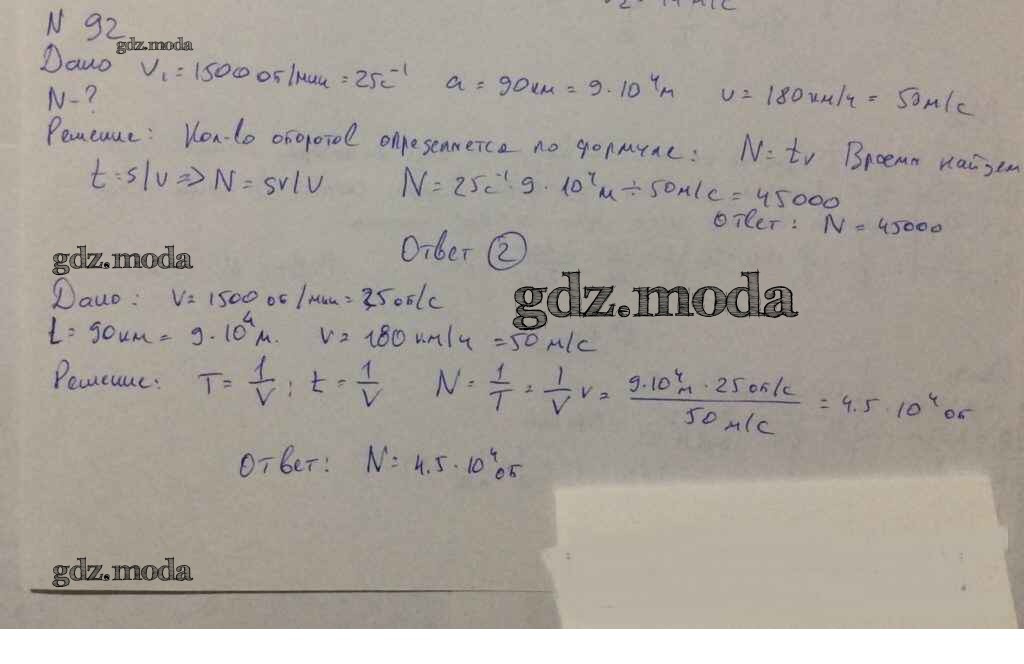 N 92
gdz.moda
Дано V₁ = 1500 об/мин = 25с⁻¹ a = 90км = 9·10⁴м v = 180км/ч = 50м/с
N - ?
Решение: Кол-во оборотов определяется по формуле: N = tv Время найдем
t = s/v => N = sv/V N = 25с⁻¹·9·10⁴м ÷ 50м/с = 45000
Ответ: N = 45000
Ответ 2
gdz.moda
gdz.moda
Дано: V = 1500 об/мин = 25об/с
ℓ = 90км = 9·10⁴м. v = 180 км/ч = 50 м/с
Решение: T = 1/V; t = 1/V N = 1/T = 1/V v = 9·10⁴м · 25об/с / 50м/с = 4.5·10⁴об
Ответ: N = 4.5·10⁴об
gdz.moda